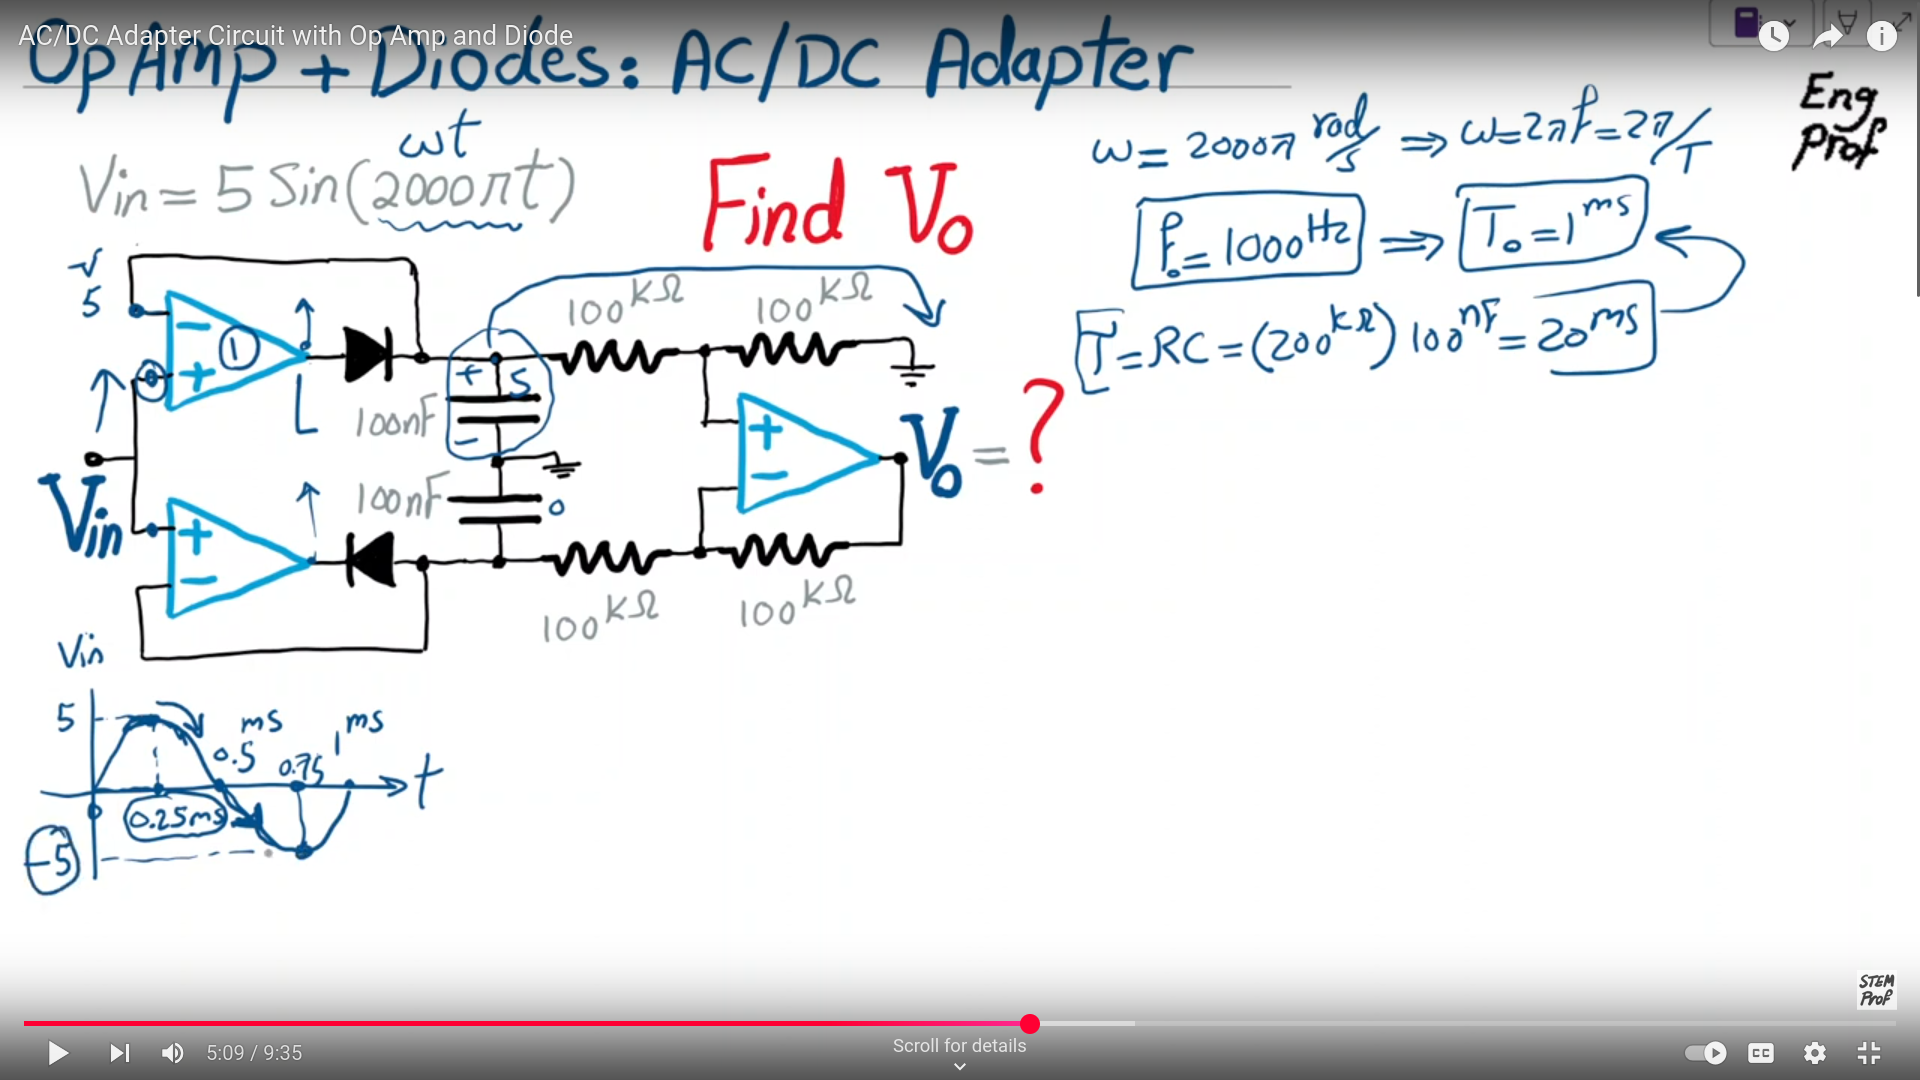 AC/DC Adapter Circuit with Op Amp and Diode
Op Amp + Diodes: AC/DC Adapter
Eng
Prof
ωt
Vin = 5 Sin(2000πt)
Find Vo
ω = 2000π rad/s ⇒ ω = 2πf = 2π/T
f₀ = 1000 Hz ⇒ T₀ = 1 ms
τ = RC = (200 kΩ) 100 nF = 20 ms
5
1
−
+
100 kΩ
100 kΩ
+ 5
−
100nF
100nF
0
Vin
+
−
+
−
Vo = ?
100 kΩ
100 kΩ
Vin
5
0.25ms
0.5 ms
0.75
1 ms
t
0
-5
STEM
Prof
5:09 / 9:35
Scroll for details
CC